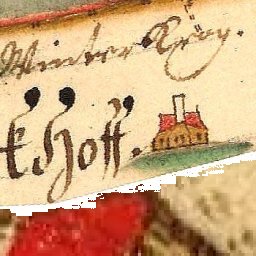 Winter Krög.
k Hoff.